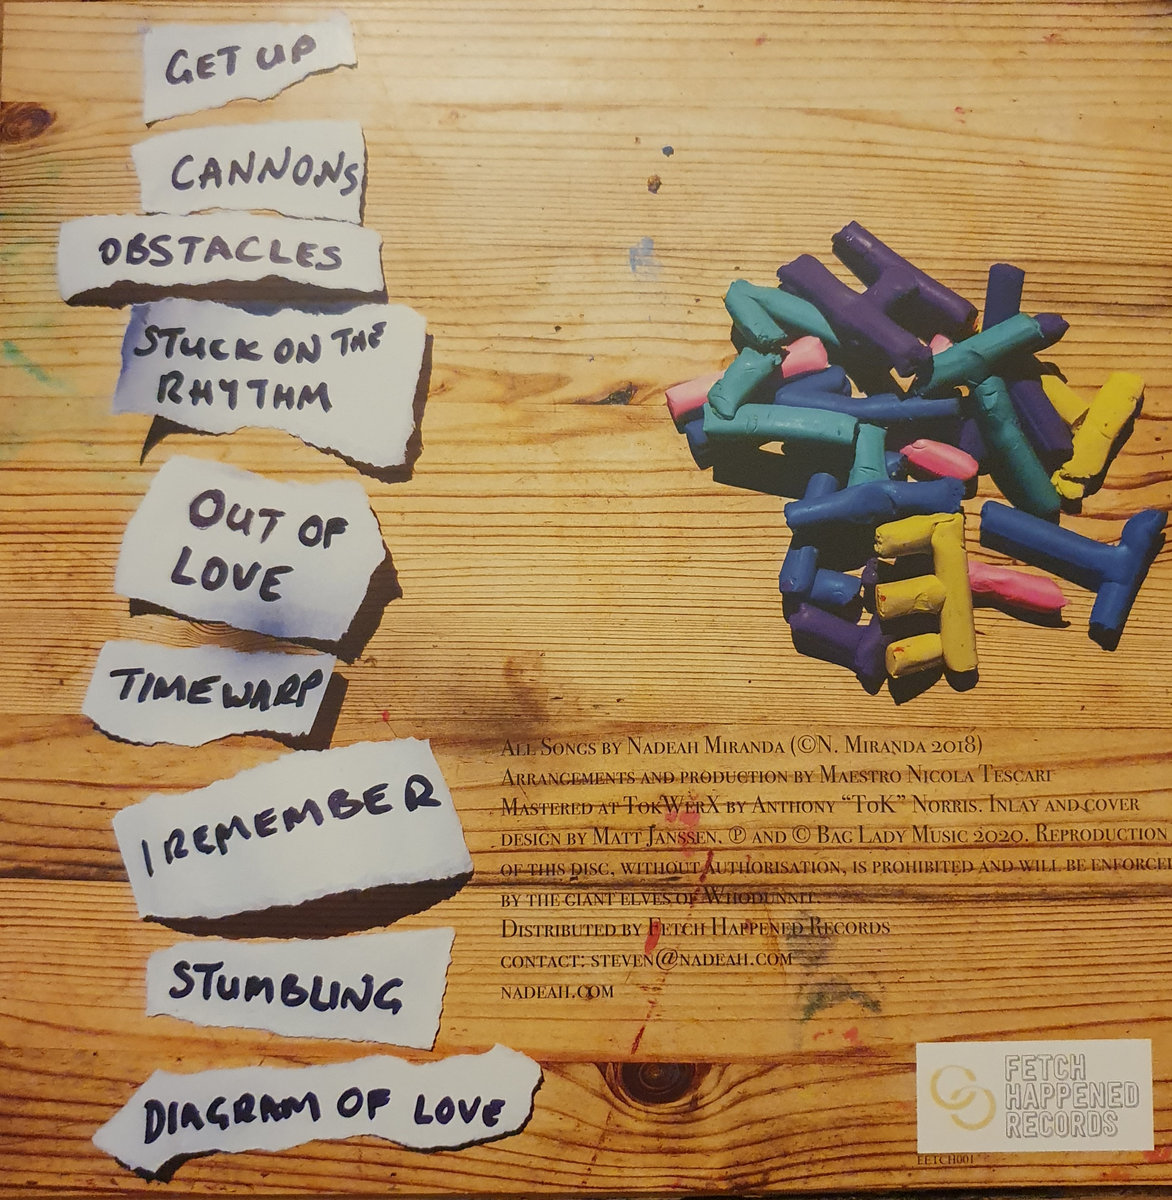 GET UP
CANNONS
OBSTACLES
STUCK ON THE
RHYTHM
OUT OF
LOVE
TIMEWARP
I REMEMBER
STUMBLING
DIAGRAM OF LOVE
All Songs by Nadeah Miranda (©N. Miranda 2018)
Arrangements and production by Maestro Nicola Tescari
Mastered at TokWerX by Anthony “ToK” Norris. Inlay and cover
design by Matt Janssen. ℗ and © Bag Lady Music 2020. Reproduction
of this disc, without authorisation, is prohibited and will be enforced
by the giant elves of Whodunnit.
Distributed by Fetch Happened Records
contact: steven@nadeah.com
nadeah.com
FETCH
HAPPENED
RECORDS
FETCH001